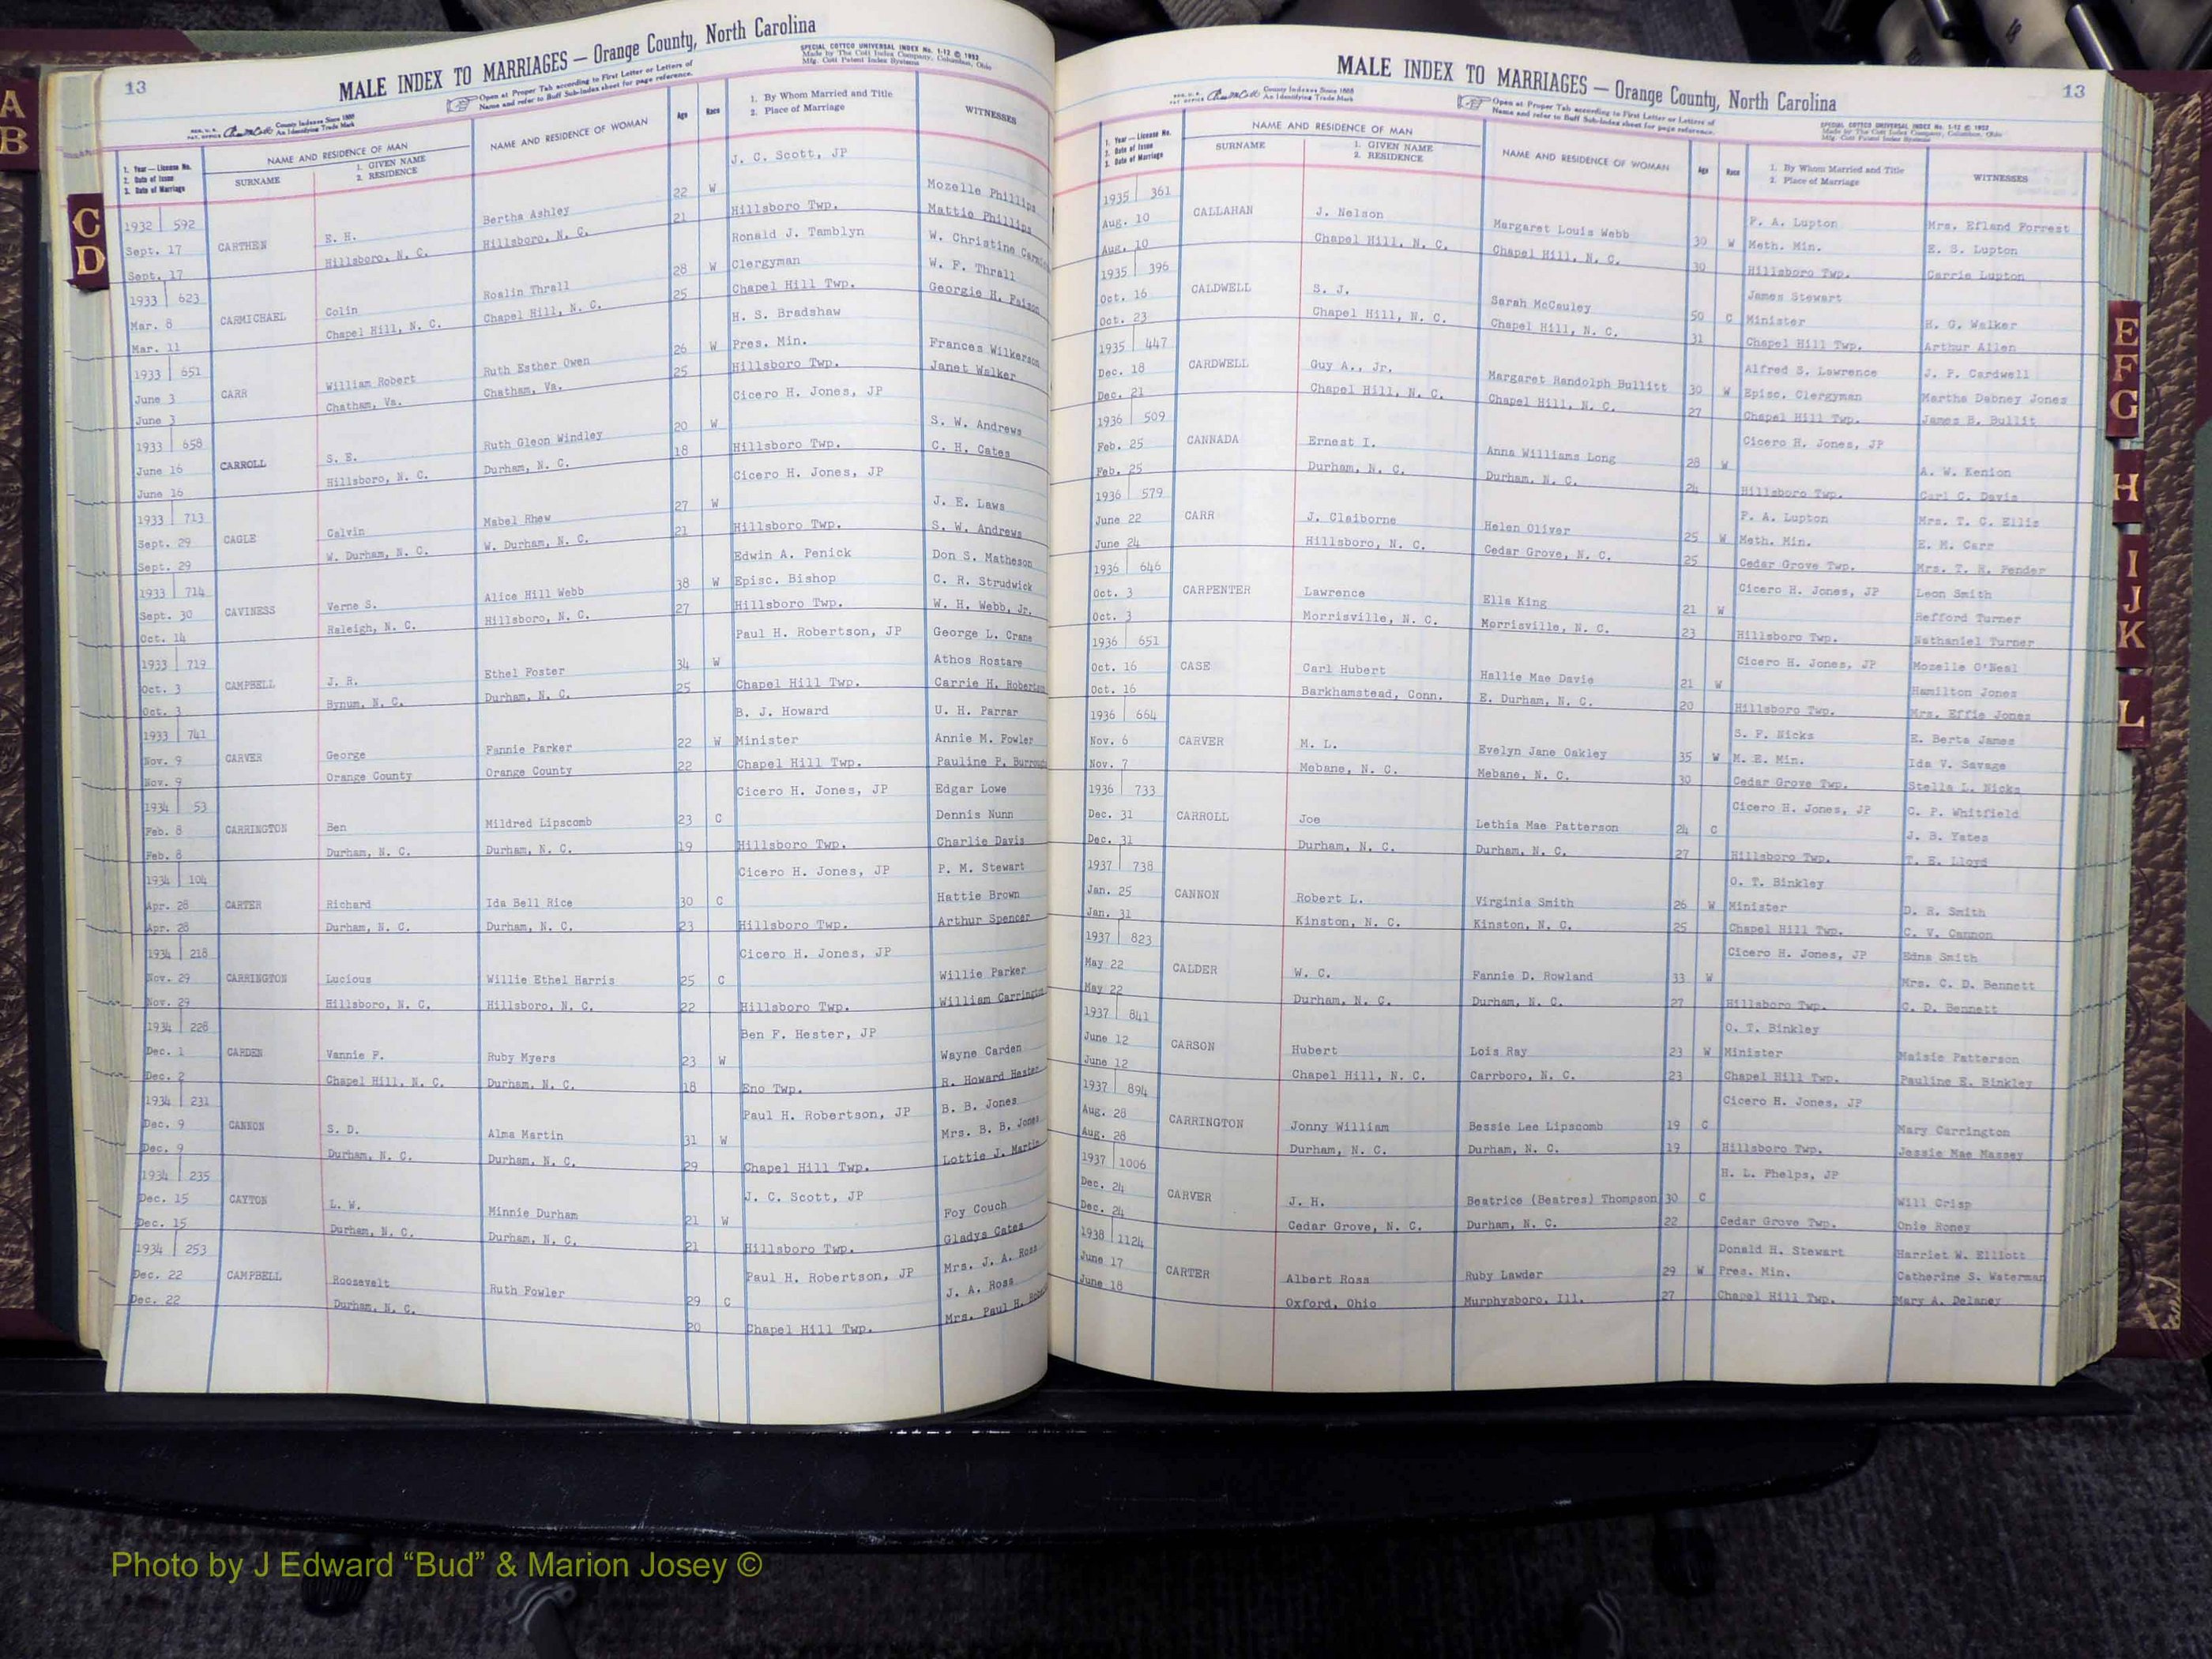 13
MALE INDEX TO MARRIAGES — Orange County, North Carolina
SPECIAL COTTCO UNIVERSAL INDEX No. 1-12 © 1952
Made by The Cott Index Company, Columbus, Ohio
Mfg. Cott Patent Index Systems
Open at Proper Tab according to First Letter or Letters of
Name and refer to Buff Sub-Index sheet for page reference.
County Indexes Since 1888
An Identifying Trade Mark
1. Year — License No.
2. Date of Issue
3. Date of Marriage
NAME AND RESIDENCE OF MAN
SURNAME
1. GIVEN NAME
2. RESIDENCE
NAME AND RESIDENCE OF WOMAN
Age
Race
1. By Whom Married and Title
2. Place of Marriage
WITNESSES
J. C. Scott, JP
1932 592 Bertha Ashley 22 W Mozelle Phillips
Sept. 17 CARTHEN E. H. Hillsboro, N. C. 21 Hillsboro Twp. Mattie Phillips
Sept. 17 Hillsboro, N. C.
Ronald J. Tamblyn W. Christine
1933 623 Roslin Thrall 28 W Clergyman W. F. Thrall
Mar. 8 CARMICHAEL Colin Chapel Hill, N. C. 25 Chapel Hill Twp. Georgie H. Faison
Mar. 11 Chapel Hill, N. C.
H. S. Bradshaw
1933 651 Ruth Esther Owen 26 W Pres. Min. Frances Wilkerson
June 3 CARR William Robert Chatham, Va. 25 Hillsboro Twp. Janet Walker
June 3 Chatham, Va.
Cicero H. Jones, JP
1933 658 Ruth Gleon Windley 20 W S. W. Andrews
June 16 CARROLL S. E. Durham, N. C. 18 Hillsboro Twp. C. H. Cates
June 16 Hillsboro, N. C.
Cicero H. Jones, JP
1933 713 Mabel Rhew 27 W J. E. Laws
Sept. 29 CAGLE Calvin W. Durham, N. C. 21 Hillsboro Twp. S. W. Andrews
Sept. 29 W. Durham, N. C.
Edwin A. Penick Don S. Matheson
1933 714 Alice Hill Webb 38 W Episc. Bishop C. R. Strudwick
Sept. 30 CAVINESS Verne S. Hillsboro, N. C. 27 Hillsboro Twp. W. H. Webb, Jr.
Oct. 14 Raleigh, N. C.
Paul H. Robertson, JP George L. Crane
1933 719 Ethel Foster 34 W Athos Rostare
Oct. 3 CAMPBELL J. R. Durham, N. C. 25 Chapel Hill Twp. Carrie H.
Oct. 3 Bynum, N. C.
B. J. Howard U. H. Parrar
1933 741 Fannie Parker 22 W Minister Annie M. Fowler
Nov. 9 CARVER George Orange County 22 Chapel Hill Twp. Pauline P.
Nov. 9 Orange County
Cicero H. Jones, JP Edgar Lowe
1934 53 Mildred Lipscomb 23 C Dennis Nunn
Feb. 8 CARRINGTON Ben Durham, N. C. 19 Hillsboro Twp. Charlie Davis
Feb. 8 Durham, N. C.
Cicero H. Jones, JP P. M. Stewart
1934 104 Hattie Brown
Apr. 28 CARTER Richard Ida Bell Rice 30 C Arthur Spencer
Apr. 28 Durham, N. C. Durham, N. C. 23 Hillsboro Twp.
1934 218 Cicero H. Jones, JP
Nov. 29 CARRINGTON Lucious Willie Ethel Harris 25 C Willie Parker
Nov. 29 Hillsboro, N. C. Hillsboro, N. C. 22 Hillsboro Twp. William
1934 228 Ben F. Hester, JP
Dec. 1 CARDEN Vannie F. Ruby Myers 23 W Wayne Carden
Dec. 2 Chapel Hill, N. C. Durham, N. C. 18 Eno Twp. R. Howard Hester
1934 231 Paul H. Robertson, JP B. B. Jones
Dec. 9 CANNON S. D. Alma Martin 31 W Mrs. B. B. Jones
Dec. 9 Durham, N. C. Durham, N. C. 29 Chapel Hill Twp. Lottie J. Martin
1934 235 J. C. Scott, JP
Dec. 15 CAYTON L. W. Minnie Durham 21 W Foy Couch
Dec. 15 Durham, N. C. Durham, N. C. 21 Hillsboro Twp. Gladys Cates
1934 253 Paul H. Robertson, JP Mrs. J. A. Ross
Dec. 22 CAMPBELL Roosevelt Ruth Fowler 29 C J. A. Ross
Dec. 22 Durham, N. C. 20 Chapel Hill Twp. Mrs. Paul H.
MALE INDEX TO MARRIAGES — Orange County, North Carolina
13
County Indexes Since 1888
An Identifying Trade Mark
Open at Proper Tab according to First Letter or Letters of
Name and refer to Buff Sub-Index sheet for page reference.
SPECIAL COTTCO UNIVERSAL INDEX No. 1-12 © 1952
Made by The Cott Index Company, Columbus, Ohio
Mfg. Cott Patent Index Systems
1. Year — License No.
2. Date of Issue
3. Date of Marriage
NAME AND RESIDENCE OF MAN
SURNAME
1. GIVEN NAME
2. RESIDENCE
NAME AND RESIDENCE OF WOMAN
Age
Race
1. By Whom Married and Title
2. Place of Marriage
WITNESSES
1935 361 F. A. Lupton Mrs. Efland Forrest
Aug. 10 CALLAHAN J. Nelson Margaret Louis Webb 30 W Meth. Min. E. S. Lupton
Aug. 10 Chapel Hill, N. C. Chapel Hill, N. C. 30 Hillsboro Twp. Carrie Lupton
1935 396 James Stewart
Oct. 16 CALDWELL S. J. Sarah McCauley 50 C Minister H. G. Walker
Oct. 23 Chapel Hill, N. C. Chapel Hill, N. C. 31 Chapel Hill Twp. Arthur Allen
1935 447 Alfred S. Lawrence J. P. Cardwell
Dec. 18 CARDWELL Guy A., Jr. Margaret Randolph Bullitt 30 W Episc. Clergyman Martha Dabney Jones
Dec. 21 Chapel Hill, N. C. Chapel Hill, N. C. 27 Chapel Hill Twp. James B. Bullit
1936 509 Cicero H. Jones, JP
Feb. 25 CANNADA Ernest I. Anna Williams Long 28 W A. W. Kenion
Feb. 25 Durham, N. C. Durham, N. C. 24 Hillsboro Twp. Carl C. Davis
1936 579 F. A. Lupton Mrs. T. C. Ellis
June 22 CARR J. Claiborne Helen Oliver 25 W Meth. Min. E. M. Carr
June 24 Hillsboro, N. C. Cedar Grove, N. C. 25 Cedar Grove Twp. Mrs. T. H. Pender
1936 646 Cicero H. Jones, JP Leon Smith
Oct. 3 CARPENTER Lawrence Ella King 21 W Hefford Turner
Oct. 3 Morrisville, N. C. Morrisville, N. C. 23 Hillsboro Twp. Nathaniel Turner
1936 651 Cicero H. Jones, JP Mozelle O'Neal
Oct. 16 CASE Carl Hubert Hallie Mae Davis 21 W Hamilton Jones
Oct. 16 Barkhamstead, Conn. E. Durham, N. C. 20 Hillsboro Twp. Mrs. Effie Jones
1936 664 S. F. Nicks E. Berta James
Nov. 6 CARVER M. L. Evelyn Jane Oakley 35 W M. E. Min. Ida V. Savage
Nov. 7 Mebane, N. C. Mebane, N. C. 30 Cedar Grove Twp. Stella L. Nicks
1936 733 Cicero H. Jones, JP C. P. Whitfield
Dec. 31 CARROLL Joe Lethia Mae Patterson 24 C J. B. Yates
Dec. 31 Durham, N. C. Durham, N. C. 27 Hillsboro Twp. T. E. Lloyd
1937 738 O. T. Binkley
Jan. 25 CANNON Robert L. Virginia Smith 26 W Minister D. R. Smith
Jan. 31 Kinston, N. C. Kinston, N. C. 25 Chapel Hill Twp. C. V. Cannon
1937 823 Cicero H. Jones, JP Edna Smith
May 22 CALDER W. C. Fannie D. Rowland 33 W Mrs. C. D. Bennett
May 22 Durham, N. C. Durham, N. C. 27 Hillsboro Twp. C. D. Bennett
1937 841 O. T. Binkley
June 12 CARSON Hubert Lois Ray 23 W Minister Maisie Patterson
June 12 Chapel Hill, N. C. Carrboro, N. C. 23 Chapel Hill Twp. Pauline E. Binkley
1937 894 Cicero H. Jones, JP
Aug. 28 CARRINGTON Jonny William Bessie Lee Lipscomb 19 C Mary Carrington
Aug. 28 Durham, N. C. Durham, N. C. 19 Hillsboro Twp. Jessie Mae Massey
1937 1006 H. L. Phelps, JP
Dec. 24 CARVER J. H. Beatrice (Beatres) Thompson 30 C Will Crisp
Dec. 24 Cedar Grove, N. C. Durham, N. C. 22 Cedar Grove Twp. Onie Roney
1938 1124 Donald H. Stewart Harriet W. Elliott
June 17 CARTER Albert Ross Ruby Lawder 29 W Pres. Min. Catherine S. Waterman
June 18 Oxford, Ohio Murphysboro, Ill. 27 Chapel Hill Twp. Mary A. Delaney
A
B
C
D
E
F
G
H
I
J
K
L
Photo by J Edward “Bud” & Marion Josey ©